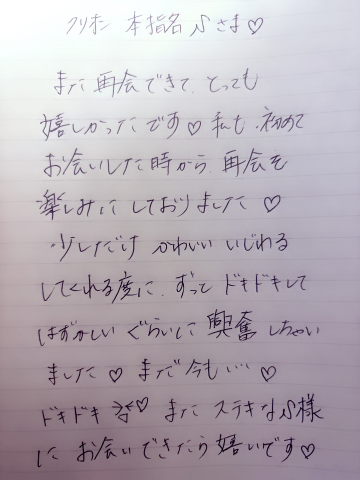 フリホン 本指名 Sさま♡
また再会できて、とっても
嬉しかったです♡ 私も、初めて
お会いした時から、再会を
楽しみにしておりました♡
少しだけ かわいい いじわる
してくれる度に、ずっと ドキドキして
はずかしい ぐらいに 興奮 しちゃい
ました♡ まだ今も…♡
ドキドキ ♡ また ステキなS様
に お会いできたら嬉しいです♡